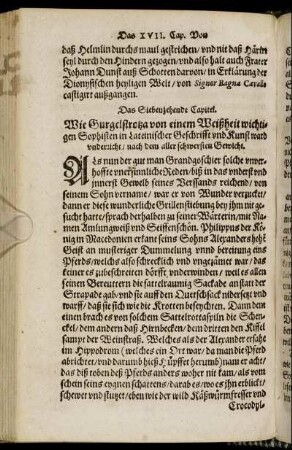 Das XVII. Cap. Von
daß Helmlin durchs maul gestrichen/ vnd nit daß Härin
seyl durch den Hindern gezogen/ vnd also halt auch Frater
Johann Dunst auß Schotten darvon/ in Erklärung der
Dionysischen heyligen Welt/ von Signor Ragna Caval
castigirt außgangen.
Das Siebenzehende Capitel.
Wie Gurgelstroza von einem Weißheit wichti-
gen Sophisten in Lateinischer Geschrifft vnd Kunst ward
vnderricht/ nach dem aller schwersten Gewicht.
ALs nun der gut man Grandgoschier solche vnver-
hoffte vnersinnliche Reden/ biß in das vnderst vnd
innerst Gewelb seines Verstands reichend/ von
seinem Sohn vername/ war er von Wunder verzuckt/
dann er diese wunderliche Grillenstiebung bey jhm nit ge-
sucht hatte/ sprach derhalben zu seiner Wärterin/ mit Na-
men Amlungweiß vnd Seiffenschön. Philippus der Kö-
nig in Macedonien erkant seins Sohns Alexanders hohē
Geist an musteriger Dummelung vnnd bereitung eins
Pferds/ welchs also schrecklich vnd vngezämet war/ das
keiner es zubeschreiten dörfft vnderwinden/ weil es allen
seinen Bereuttern die sattelraumig Sackade anstatt der
Strapade gab/ vnd sie auff den Quetschsack niderseyt vnd
warff/ daß sie sich wie die Krotten beseychten. Dann dem
einen brach es von solchem Sattelrottafftln die Schen-
ckel/ dem andern daß Hirnbecken/ dem dritten den Kiffel
sampt der Weinstraß. Welches als der Alexander ersahe
im Hyppodrom (welches ein Ort war/ da man die Pferd
abrichtet/ vnd darumb hieß Hüpffet herumb) nam er acht/
das diß toben deß Pferds anders woher nit kam/ als vom
schein seines eygnen schattens/ darab es/ wo es jhn erblickt/
schewet vnd stutzet/ eben wie der wild Käßwürmfresser vnd
Crocodyl-